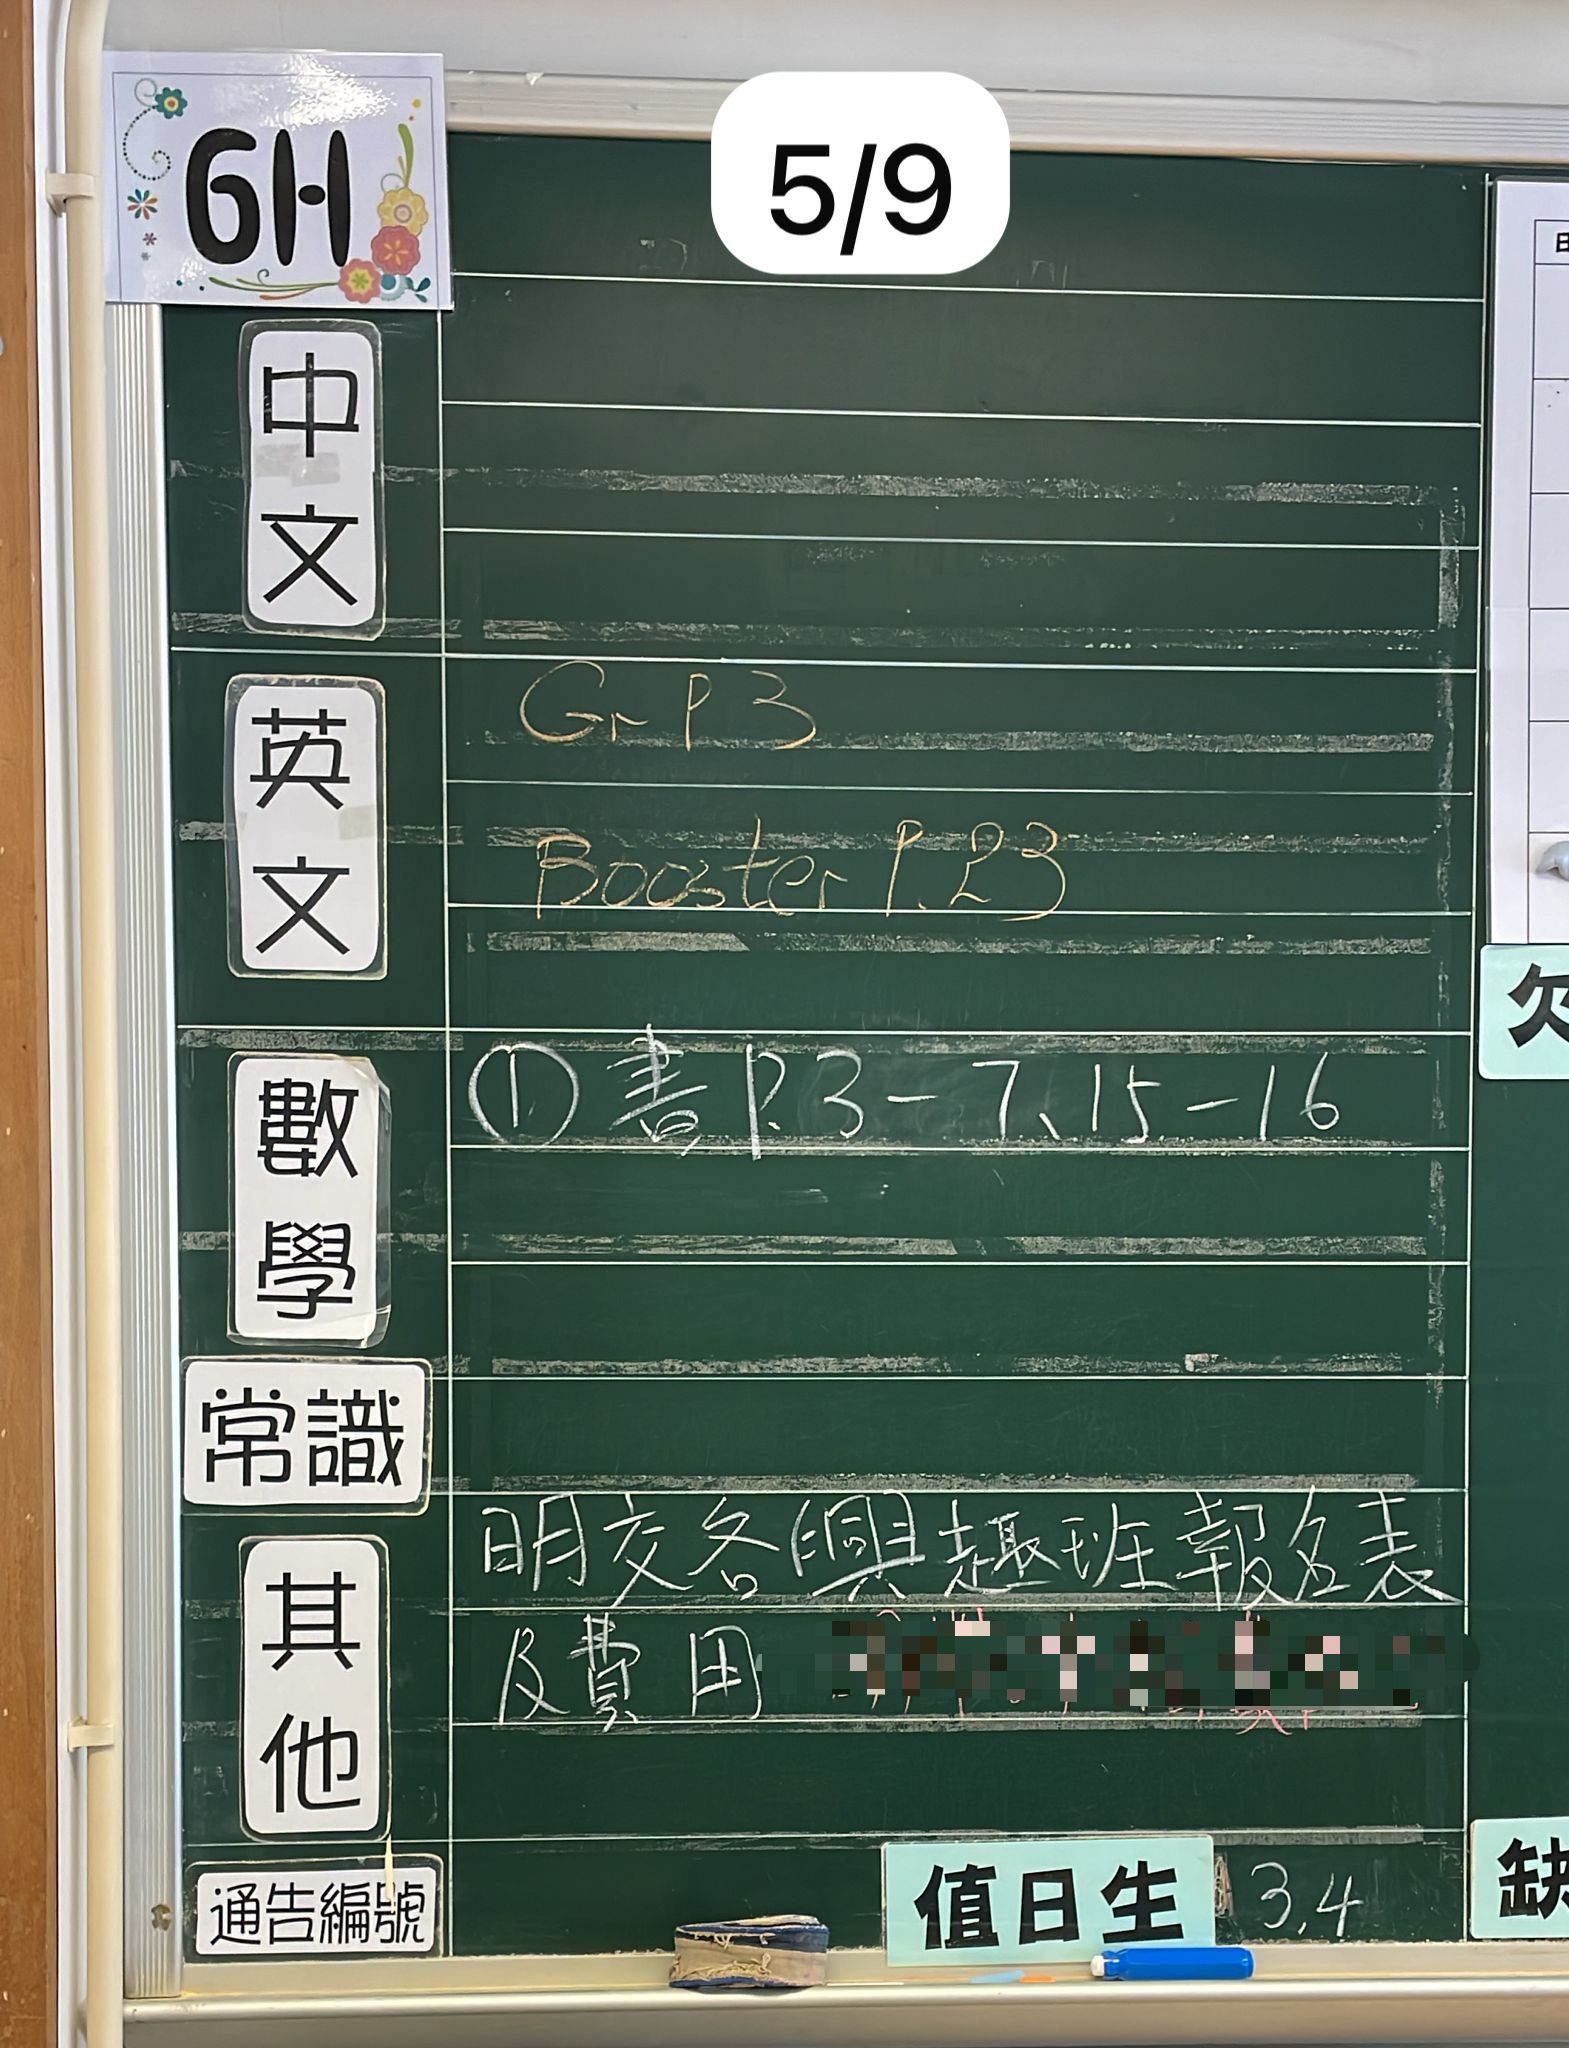 6H
5/9
中文
英文
Gr P.3
Booster P.23
數學
① 書 P.3-7、15-16
常識
其他
明交各興趣班報名表
及費用
通告編號
值日生
3,4
日
欠
缺